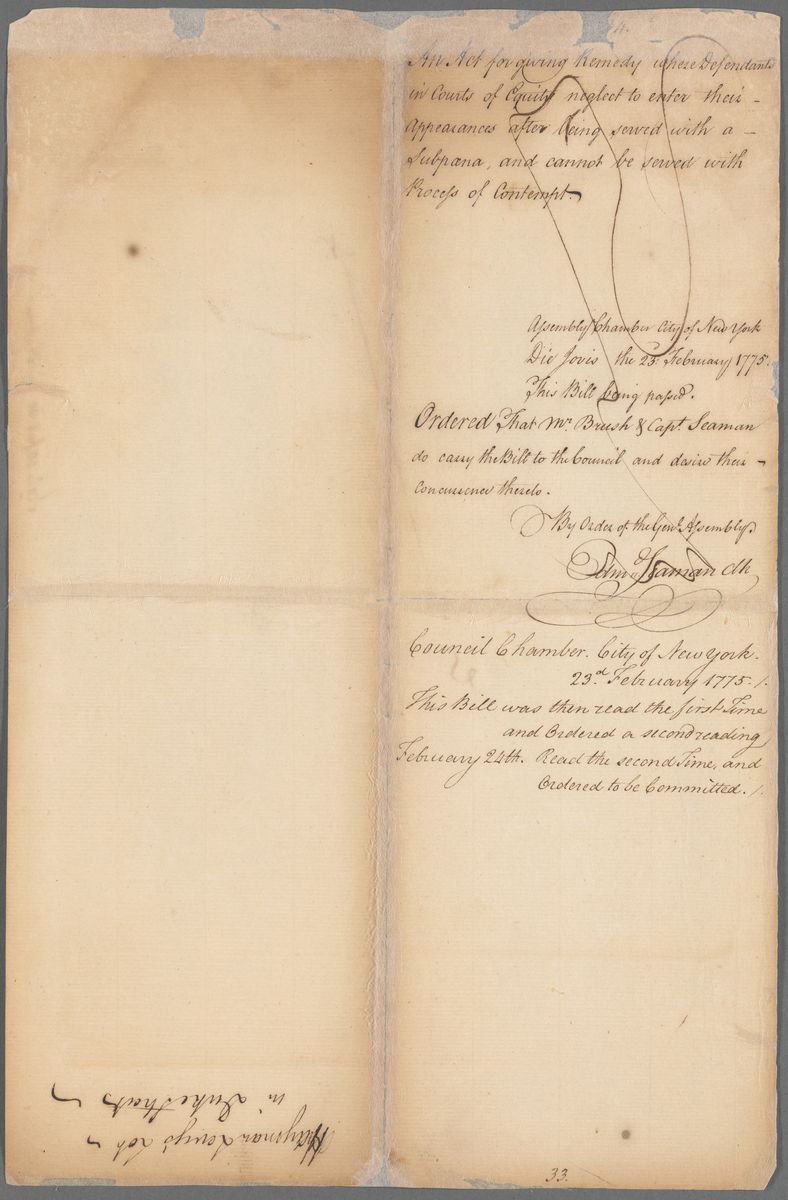 4.
An Act for giving Remedy where Defendants
in Courts of Equity neglect to enter their –
Appearances after being served with a –
Subpæna, and cannot be served with
Process of Contempt.
Assembly Chamber City of New York
Die Jovis the 23d. February 1775.
This Bill being passed.
Ordered That Mr. Brush & Capt. Seaman
do carry the Bill to the Council and desire their –
Concurrence thereto.
By Order of the Genl. Assembly.
Edmd. Seaman Clk
Council Chamber. City of New York.
23.d February 1775. /.
This Bill was then read the first Time
and Ordered a second reading
February 24th. Read the second Time, and
Ordered to be Committed. /.
33.
Hayman Levy's Lot
in Duke Street